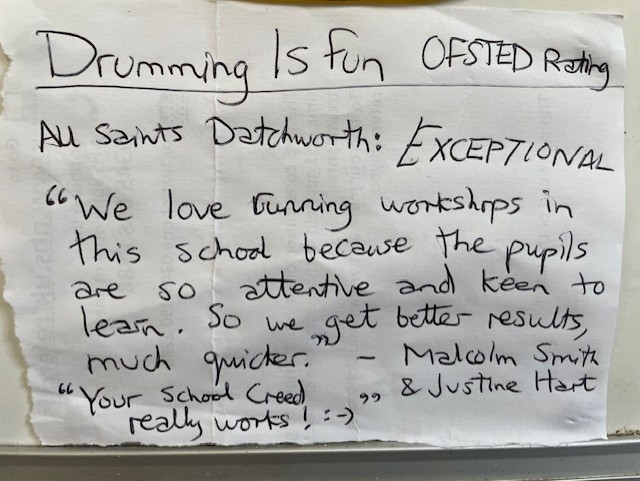 Drumming Is Fun OFSTED Rating
All Saints Datchworth: EXCEPTIONAL
"We love running workshops in
this school because the pupils
are so attentive and keen to
learn. So we get better results,
much quicker." - Malcolm Smith
& Justine Hart
"Your School Creed
really works! :-)"